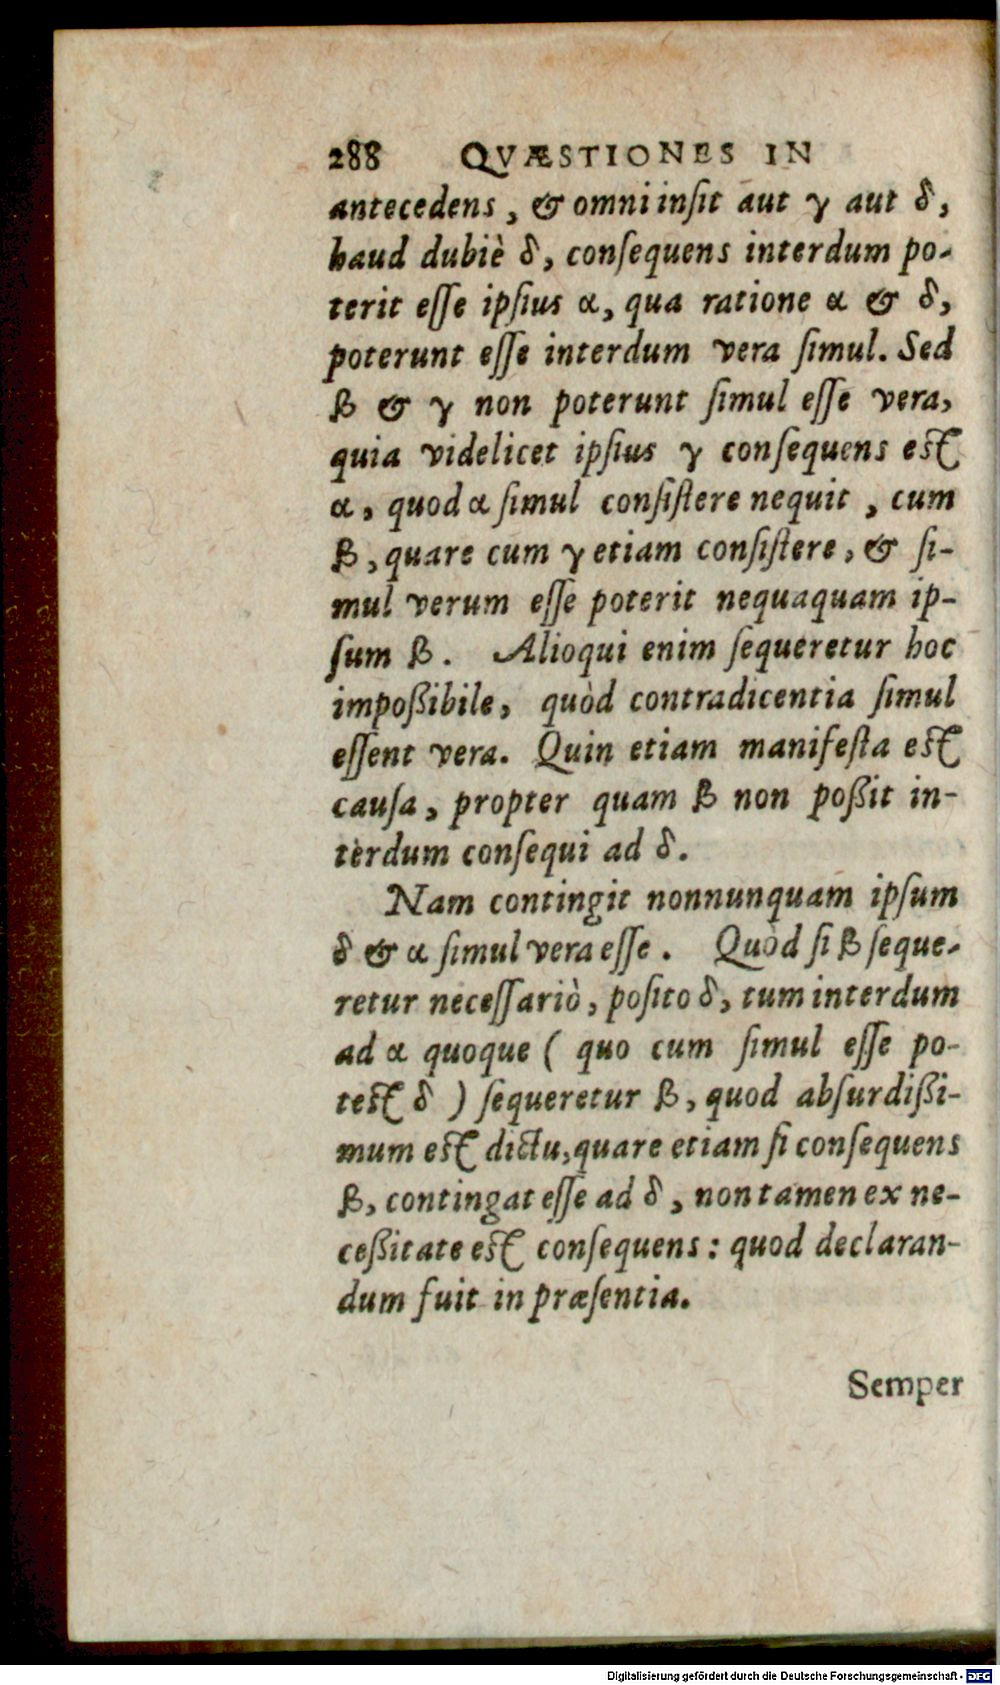 288 QVÆSTIONES IN
antecedens, & omni insit aut γ aut δ,
haud dubiè δ, consequens interdum po-
terit esse ipsius α, qua ratione α & δ,
poterunt esse interdum vera simul. Sed
β & γ non poterunt simul esse vera,
quia videlicet ipsius γ consequens est
α, quod α simul consistere nequit, cum
β, quare cum γ etiam consistere, & si-
mul verum esse poterit nequaquam ip-
sum β. Alioqui enim sequeretur hoc
impoßibile, quòd contradicentia simul
essent vera. Quin etiam manifesta est
causa, propter quam β non poßit in-
terdum consequi ad δ.
Nam contingit nonnunquam ipsum
δ & α simul vera esse. Quòd si β seque-
retur necessariò, posito δ, tum interdum
ad α quoque ( quo cum simul esse po-
test δ ) sequeretur β, quod absurdißi-
mum est dictu, quare etiam si consequens
β, contingat esse ad δ, non tamen ex ne-
ceßitate est consequens: quod declaran-
dum fuit in præsentia.
Semper
Digitalisierung gefördert durch die Deutsche Forschungsgemeinschaft - DFG